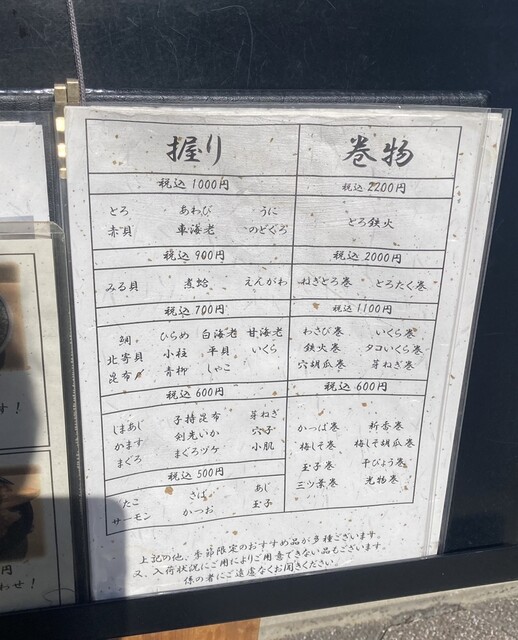 握り
税込 1000円
とろ あわび うに
赤貝 車海老 のどぐろ
税込 900円
みる貝 煮蛤 えんがわ
税込 700円
鯛 ひらめ 白海老 甘海老
北寄貝 小柱 平貝 いくら
昆布〆 青柳 しゃこ
税込 600円
しまあじ 子持昆布 芽ねぎ
かます 剣先いか 穴子
まぐろ まぐろヅケ 小肌
税込 500円
たこ さば あじ
サーモン かつお 玉子
巻物
税込 2200円
とろ鉄火
税込 2000円
ねぎとろ巻 とろたく巻
税込 1100円
わさび巻 いくら巻
鉄火巻 タコいくら巻
穴胡瓜巻 芽ねぎ巻
税込 600円
かっぱ巻 新香巻
梅しそ巻 梅しそ胡瓜巻
玉子巻 干ぴょう巻
三ツ葉巻 光物巻
上記の他、季節限定のおすすめ品が多種ございます。
又、入荷状況にご用によりご用意できない品もございます。
係の者にご遠慮なくお聞きください。
す!
円
わせ!